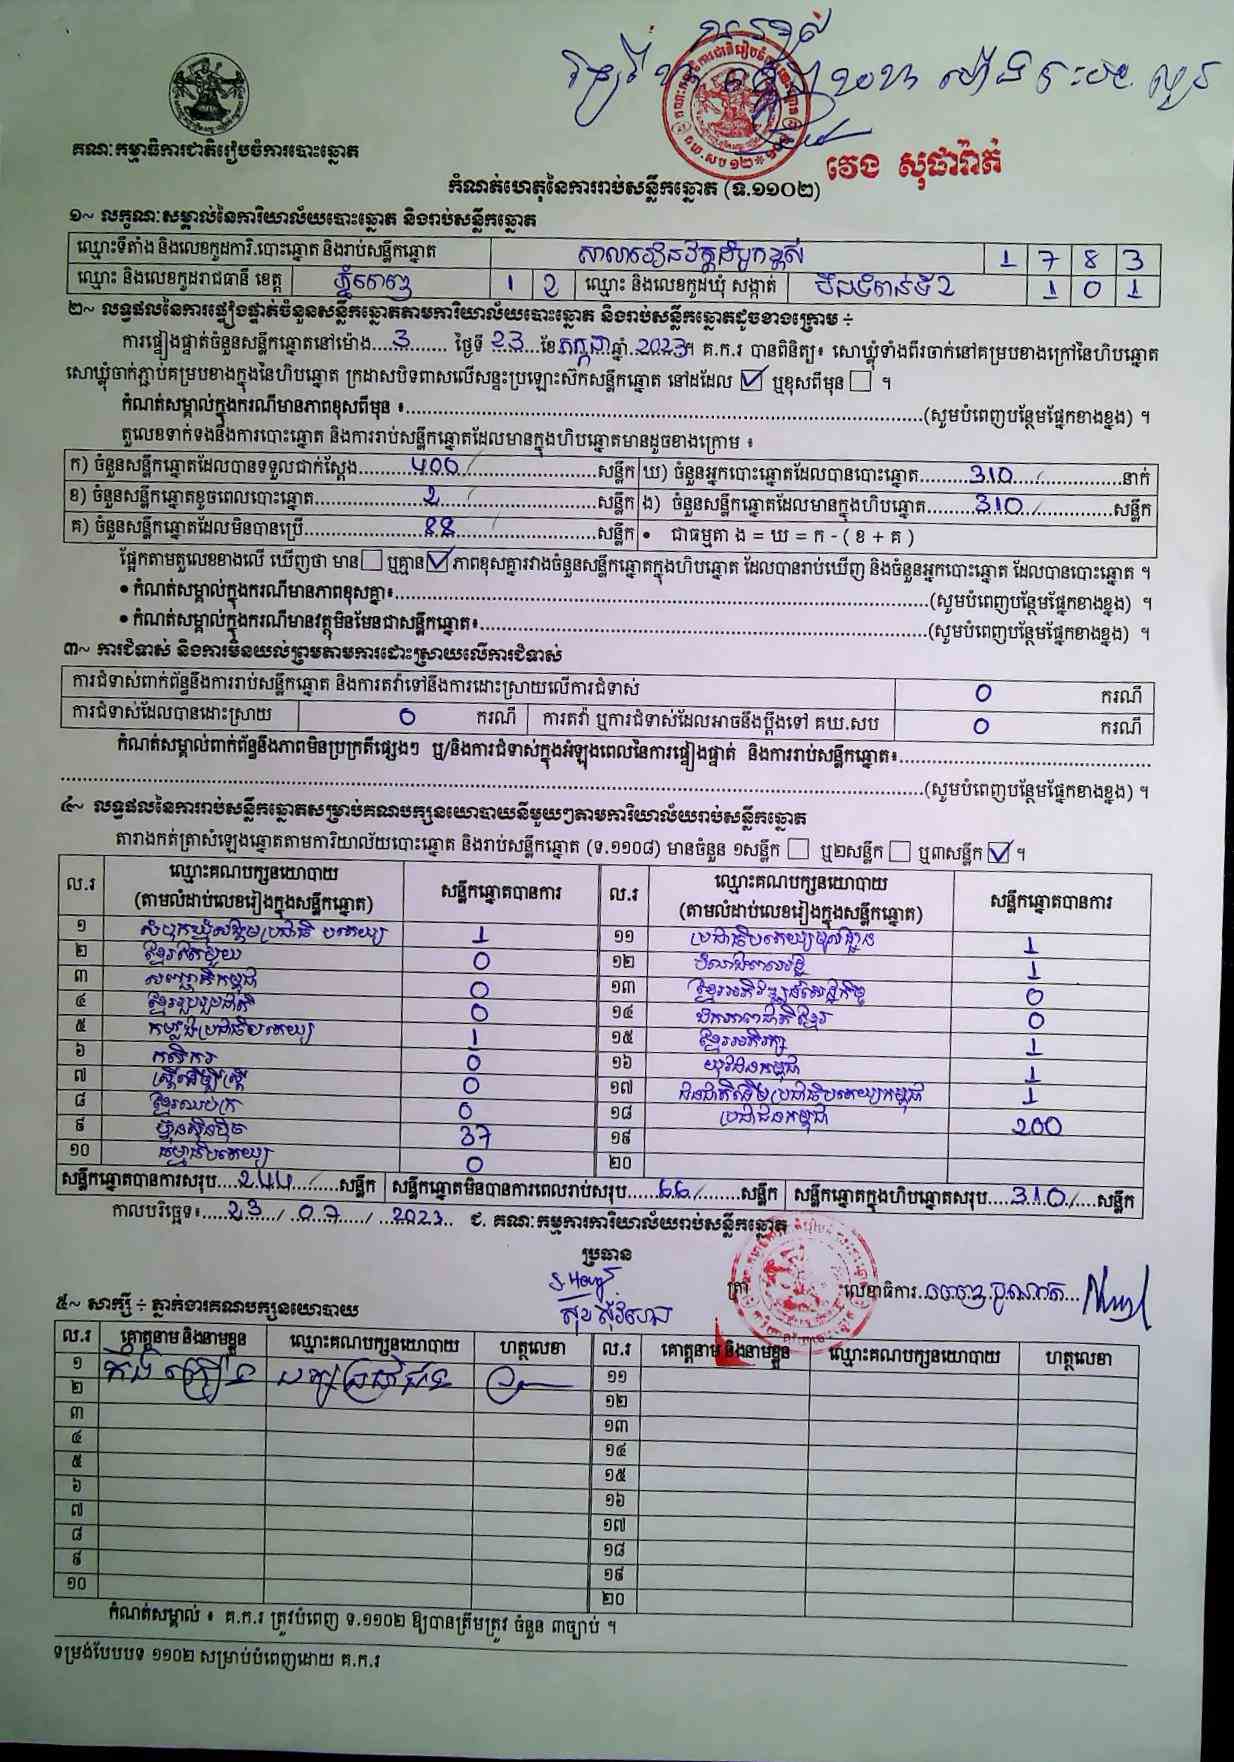 គណៈកម្មាធិការជាតិរៀបចំការបោះឆ្នោត
វេង សុផារ៉ាត់
កំណត់ហេតុនៃការរាប់សន្លឹកឆ្នោត (ទ.១១០២)
១~ លក្ខណៈសម្គាល់នៃការិយាល័យបោះឆ្នោត និងរាប់សន្លឹកឆ្នោត
ឈ្មោះទីតាំង និងលេខកូដការិ.បោះឆ្នោត និងរាប់សន្លឹកឆ្នោត សាលារៀនវត្តដំបូកខ្ពស់ 1 7 8 3
ឈ្មោះ និងលេខកូដរាជធានី ខេត្ត ភ្នំពេញ 1 2 ឈ្មោះ និងលេខកូដឃុំ សង្កាត់ បឹងទំពុនទី2 1 0 1
២~ លទ្ធផលនៃការផ្ទៀងផ្ទាត់ចំនួនសន្លឹកឆ្នោតតាមការិយាល័យបោះឆ្នោត និងរាប់សន្លឹកឆ្នោតដូចខាងក្រោម ÷
ការផ្ទៀងផ្ទាត់ចំនួនសន្លឹកឆ្នោតនៅម៉ោង...3...... ថ្ងៃទី ...23...ខែកក្កដាឆ្នាំ..2023។ គ.ក.រ បានពិនិត្យ៖ សោឃ្លុំទាំងពីរចាក់នៅគម្របខាងក្រៅនៃហិបឆ្នោត
សោឃ្លុំចាក់ភ្ជាប់គម្របខាងក្នុងនៃហិបឆ្នោត ក្រដាសបិទពាសលើសន្ទះប្រឡោះស៊កសន្លឹកឆ្នោត នៅដដែល ☑ ឬខុសពីមុន ☐ ។
កំណត់សម្គាល់ក្នុងករណីមានភាពខុសពីមុន ៖......(សូមបំពេញបន្ថែមផ្នែកខាងខ្នង) ។
តួលេខទាក់ទងនឹងការបោះឆ្នោត និងការរាប់សន្លឹកឆ្នោតដែលមានក្នុងហិបឆ្នោតមានដូចខាងក្រោម ៖
ក) ចំនួនសន្លឹកឆ្នោតដែលបានទទួលជាក់ស្តែង......400/......សន្លឹក ឃ) ចំនួនអ្នកបោះឆ្នោតដែលបានបោះឆ្នោត......310/......នាក់
ខ) ចំនួនសន្លឹកឆ្នោតខូចពេលបោះឆ្នោត......2/......សន្លឹក ង) ចំនួនសន្លឹកឆ្នោតដែលមានក្នុងហិបឆ្នោត......310/......សន្លឹក
គ) ចំនួនសន្លឹកឆ្នោតដែលមិនបានប្រើ......88/......សន្លឹក • ជាធម្មតា ង = ឃ = ក - ( ខ + គ )
ផ្អែកតាមតួលេខខាងលើ ឃើញថា មាន☐ ឬគ្មាន☑ ភាពខុសគ្នារវាងចំនួនសន្លឹកឆ្នោតក្នុងហិបឆ្នោត ដែលបានរាប់ឃើញ និងចំនួនអ្នកបោះឆ្នោត ដែលបានបោះឆ្នោត ។
• កំណត់សម្គាល់ក្នុងករណីមានភាពខុសគ្នា៖......(សូមបំពេញបន្ថែមផ្នែកខាងខ្នង) ។
• កំណត់សម្គាល់ក្នុងករណីមានវត្ថុមិនមែនជាសន្លឹកឆ្នោត៖......(សូមបំពេញបន្ថែមផ្នែកខាងខ្នង) ។
៣~ ការជំទាស់ និងការមិនយល់ព្រមតាមការដោះស្រាយលើការជំទាស់
ការជំទាស់ពាក់ព័ន្ធនឹងការរាប់សន្លឹកឆ្នោត និងការតវ៉ាទៅនឹងការដោះស្រាយលើការជំទាស់ 0 ករណី
ការជំទាស់ដែលបានដោះស្រាយ 0 ករណី ការតវ៉ា ឬការជំទាស់ដែលអាចនឹងប្តឹងទៅ គឃ.សប 0 ករណី
កំណត់សម្គាល់ពាក់ព័ន្ធនឹងភាពមិនប្រក្រតីផ្សេងៗ ឬ/និងការជំទាស់ក្នុងអំឡុងពេលនៃការផ្ទៀងផ្ទាត់ និងការរាប់សន្លឹកឆ្នោត៖......
......(សូមបំពេញបន្ថែមផ្នែកខាងខ្នង) ។
៤~ លទ្ធផលនៃការរាប់សន្លឹកឆ្នោតសម្រាប់គណបក្សនយោបាយនីមួយៗតាមការិយាល័យរាប់សន្លឹកឆ្នោត
តារាងកត់ត្រាសំឡេងឆ្នោតតាមការិយាល័យបោះឆ្នោត និងរាប់សន្លឹកឆ្នោត (ទ.១១០៨) មានចំនួន ១សន្លឹក ☐ ឬ២សន្លឹក ☐ ឬ៣សន្លឹក ☑ ។
ល.រ ឈ្មោះគណបក្សនយោបាយ (តាមលំដាប់លេខរៀងក្នុងសន្លឹកឆ្នោត) សន្លឹកឆ្នោតបានការ ល.រ ឈ្មោះគណបក្សនយោបាយ (តាមលំដាប់លេខរៀងក្នុងសន្លឹកឆ្នោត) សន្លឹកឆ្នោតបានការ
១ សំបុកឃ្មុំសង្គមប្រជាធិបតេយ្យ 1 ១១ ប្រជាធិបតេយ្យមូលដ្ឋាន 1
២ ខ្មែរតែមួយ 0 ១២ បំណងពលរដ្ឋ 1
៣ សញ្ជាតិកម្ពុជា 0 ១៣ ខ្មែរអភិវឌ្ឍន៍សេដ្ឋកិច្ច 0
៤ ខ្មែររួបរួមជាតិ 0 ១៤ ឯកភាពជាតិខ្មែរ 0
៥ កម្លាំងប្រជាធិបតេយ្យ 1 ១៥ ខ្មែរអភិរក្ស 1
៦ កសិករ 0 ១៦ យុវជនកម្ពុជា 1
៧ ស្ត្រីដើម្បីស្ត្រី 0 ១៧ ជនជាតិដើមប្រជាធិបតេយ្យកម្ពុជា 1
៨ ខ្មែរឈប់ក្រ 0 ១៨ ប្រជាជនកម្ពុជា 200
៩ ហ៊្វុនស៊ិនប៉ិច 37 ១៩
១០ ធម្មាធិបតេយ្យ 0 ២០
សន្លឹកឆ្នោតបានការសរុប....244/......សន្លឹក សន្លឹកឆ្នោតមិនបានការពេលរាប់សរុប......66/......សន្លឹក សន្លឹកឆ្នោតក្នុងហិបឆ្នោតសរុប....310/....សន្លឹក
កាលបរិច្ឆេទ៖....23..../...07..../...2023.. ជ. គណៈកម្មការការិយាល័យរាប់សន្លឹកឆ្នោត
ប្រធាន
ត្រា លេខាធិការ
៥~ សាក្សី ÷ ភ្នាក់ងារគណបក្សនយោបាយ
ល.រ គោត្តនាម និងនាមខ្លួន ឈ្មោះគណបក្សនយោបាយ ហត្ថលេខា ល.រ គោត្តនាម និងនាមខ្លួន ឈ្មោះគណបក្សនយោបាយ ហត្ថលេខា
១ ១១
២ ១២
៣ ១៣
៤ ១៤
៥ ១៥
៦ ១៦
៧ ១៧
៨ ១៨
៩ ១៩
១០ ២០
កំណត់សម្គាល់ ៖ គ.ក.រ ត្រូវបំពេញ ទ.១១០២ ឱ្យបានត្រឹមត្រូវ ចំនួន ៣ច្បាប់ ។
ទម្រង់បែបបទ ១១០២ សម្រាប់បំពេញដោយ គ.ក.រ